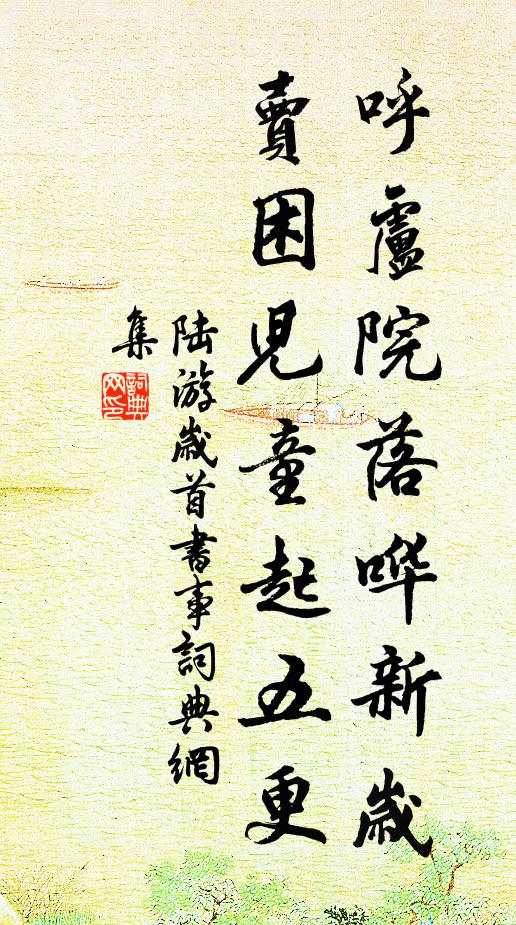 呼盧院落哗新歲
賣困児童起五更
陆游歲首書事詞典網
集
詞典
网印